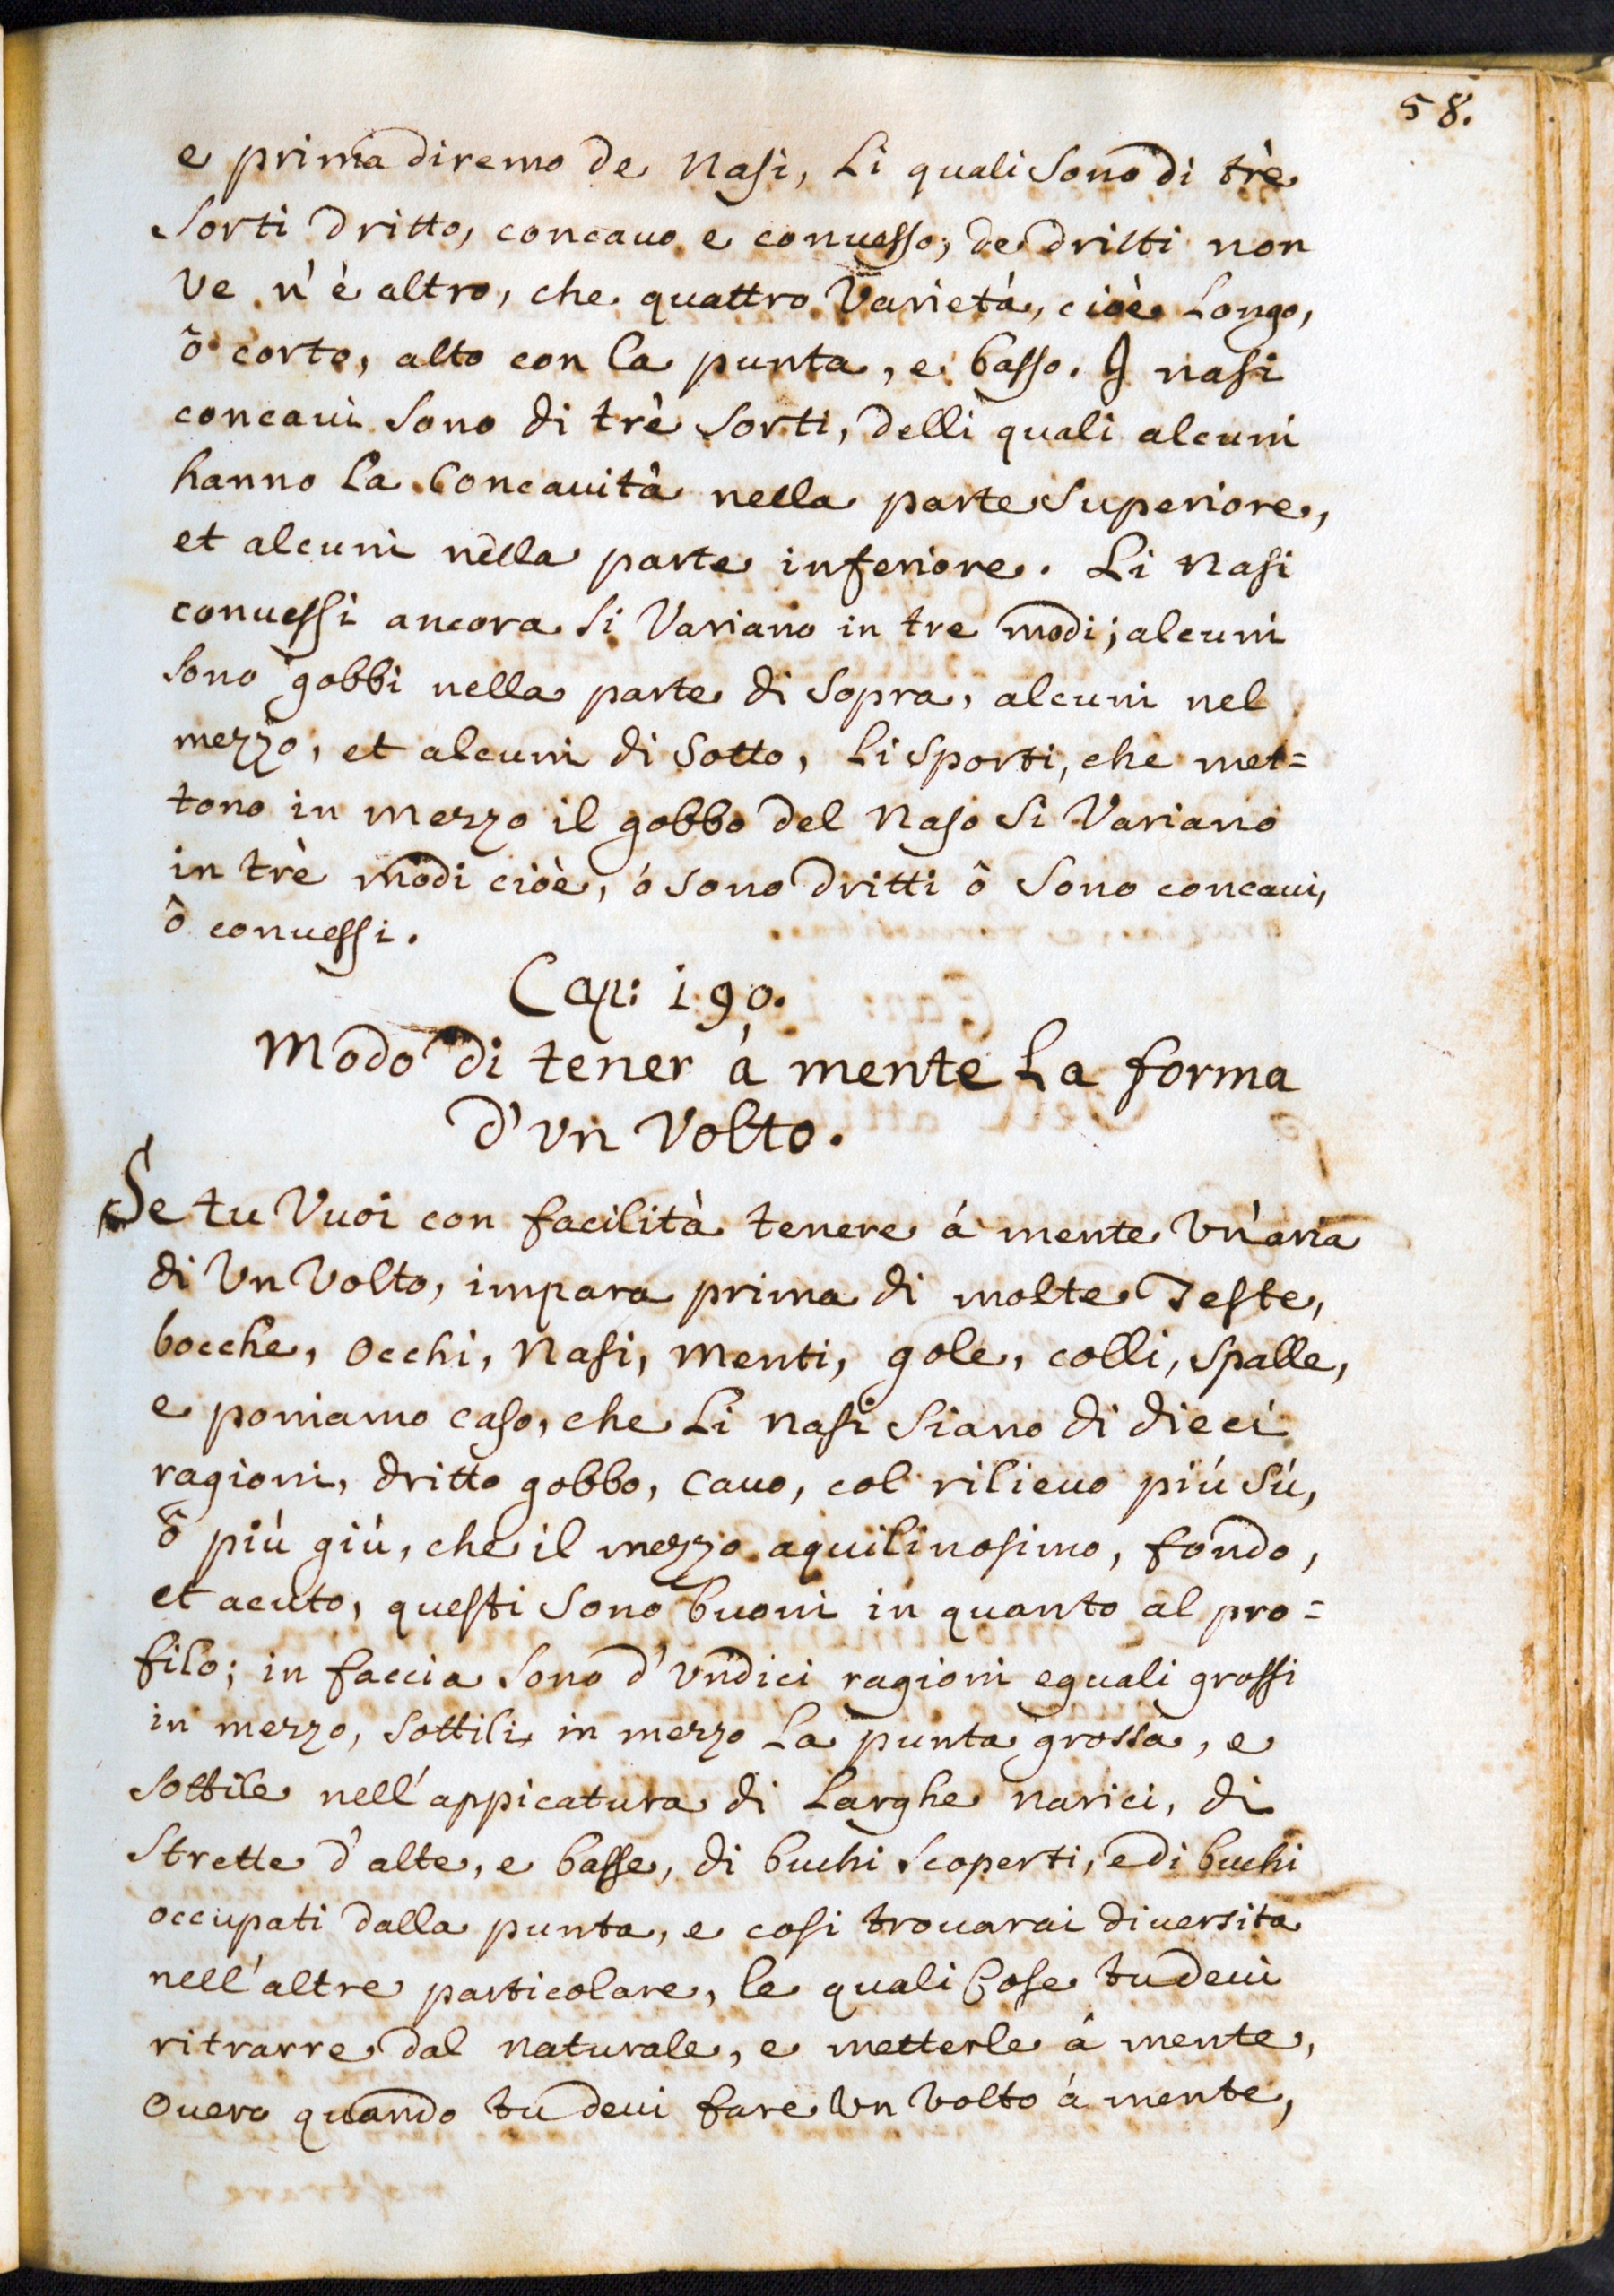 58.
e prima diremo de Nasi, Li quali sono di trè
sorti dritto, concauo e conuesso, de dritti non
ve n'è altro, che quattro Varietà, cioè Longo,
ò corto, alto con la punta, e basso. I nasi
concaui sono di trè sorti, delli quali alcuni
hanno la Concauità nella parte superiore,
et alcuni nella parte inferiore. Li Nasi
conuessi ancora si Variano in tre modi; alcuni
sono gobbi nella parte di sopra, alcuni nel
mezzo, et alcuni di sotto, Li sporti, che met=
tono in mezzo il gobbo del Naso si Variano
in trè modi cioè, ó sono dritti ò sono concaui,
ò conuessi.
Cap: 190.
Modo di tener á mente La forma
d'vn Volto.
Se tu Vuoi con facilità tenere á mente vn'aria
di vn volto, impara prima di molte Teste,
bocche, occhi, Nasi, Menti, gole, colli, spalle,
e poniamo caso, che Li nasi siano di dieci
ragioni, dritto gobbo, cauo, col rilieuo piú sú,
ò più giù, che il mezzo aquilinosimo, fondo,
et acuto, questi sono buoni in quanto al pro=
filo; in faccia sono d'vndici ragioni eguali grossi
in mezzo, sottili in mezzo La punta grossa, e
sottile nell'appicatura di Larghe narici, di
strette d'alte, e basse, di buchi scoperti, e di buchi
occupati dalla punta, e cosi trouarai diuersita
nell'altre particolare, le quali Cose tu deui
ritrarre dal naturale, e metterle á mente,
ouero quando tu deui fare vn volto á mente,